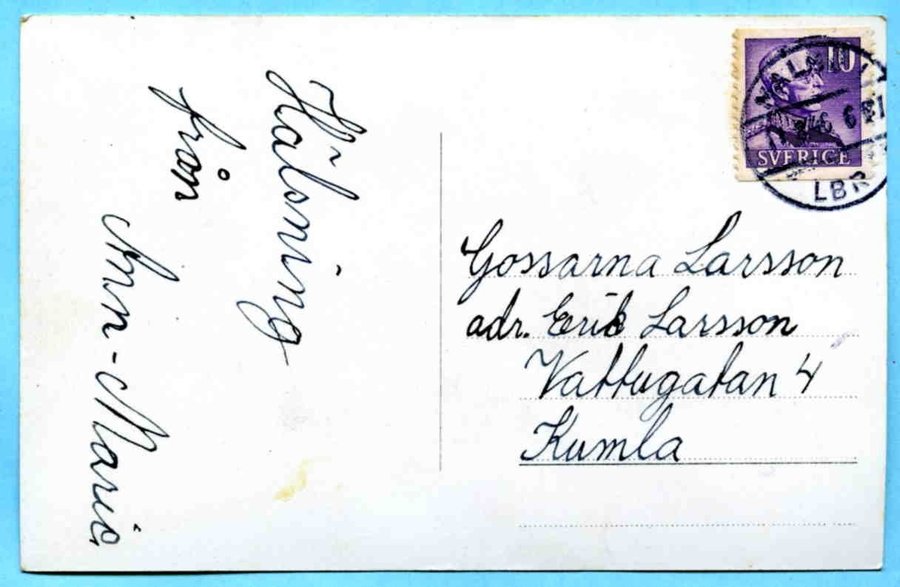 Hälsning
från
Ann-Marie
10
SVERIGE
LBR
Gossarna Larsson
adr. Erik Larsson
Vattugatan 4
Kumla